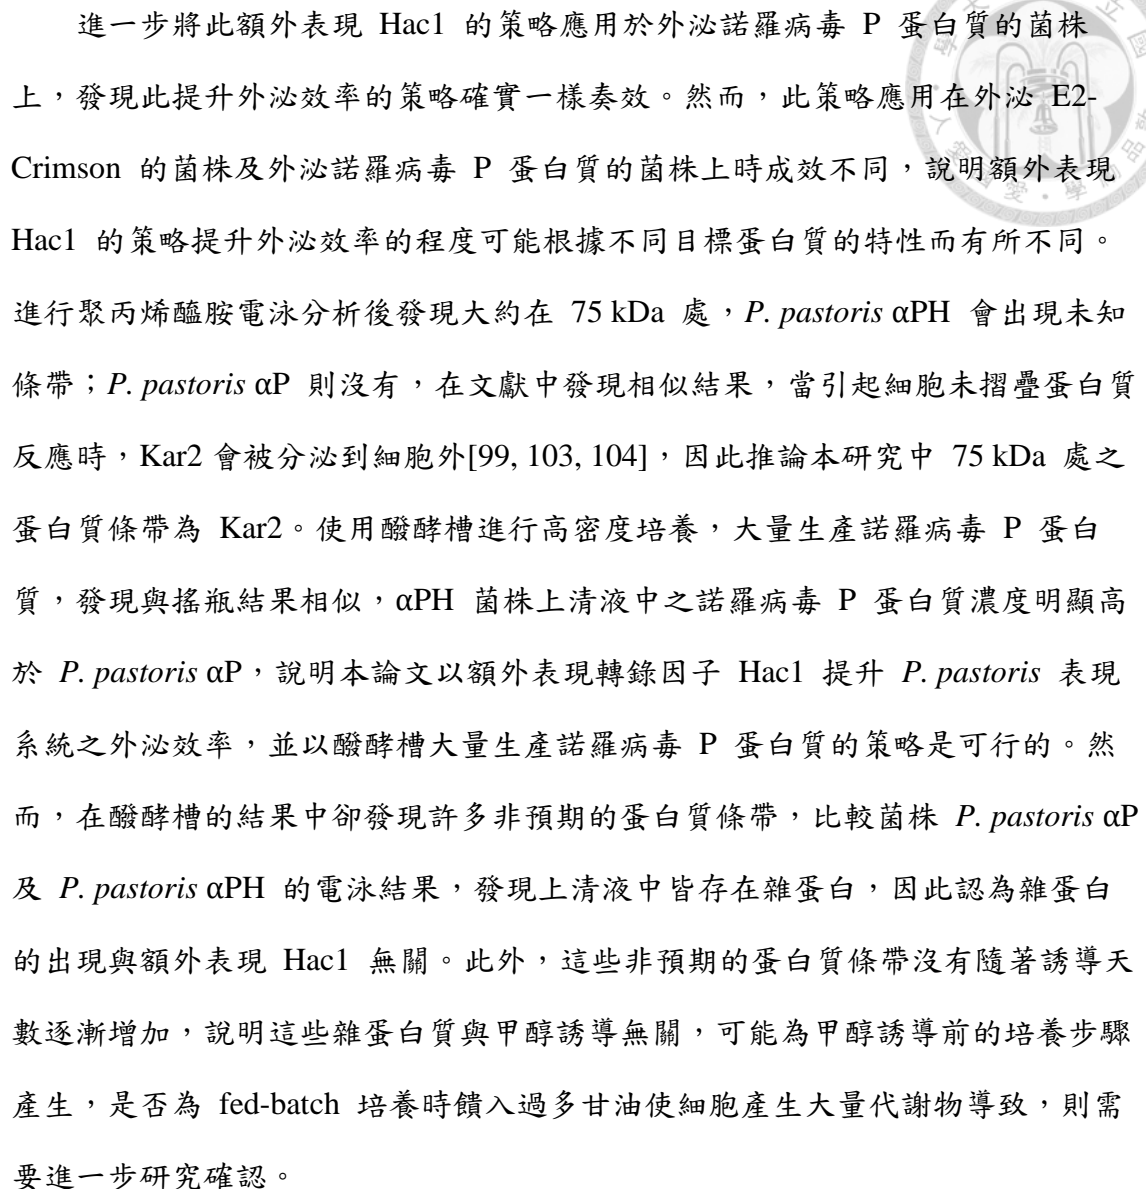 進一步將此額外表現 Hac1 的策略應用於外泌諾羅病毒 P 蛋白質的菌株
上，發現此提升外泌效率的策略確實一樣奏效。然而，此策略應用在外泌 E2-
Crimson 的菌株及外泌諾羅病毒 P 蛋白質的菌株上時成效不同，說明額外表現
Hac1 的策略提升外泌效率的程度可能根據不同目標蛋白質的特性而有所不同。
進行聚丙烯醯胺電泳分析後發現大約在 75 kDa 處，P. pastoris αPH 會出現未知
條帶；P. pastoris αP 則沒有，在文獻中發現相似結果，當引起細胞未摺疊蛋白質
反應時，Kar2 會被分泌到細胞外[99, 103, 104]，因此推論本研究中 75 kDa 處之
蛋白質條帶為 Kar2。使用醱酵槽進行高密度培養，大量生產諾羅病毒 P 蛋白
質，發現與搖瓶結果相似，αPH 菌株上清液中之諾羅病毒 P 蛋白質濃度明顯高
於 P. pastoris αP，說明本論文以額外表現轉錄因子 Hac1 提升 P. pastoris 表現
系統之外泌效率，並以醱酵槽大量生產諾羅病毒 P 蛋白質的策略是可行的。然
而，在醱酵槽的結果中卻發現許多非預期的蛋白質條帶，比較菌株 P. pastoris αP
及 P. pastoris αPH 的電泳結果，發現上清液中皆存在雜蛋白，因此認為雜蛋白
的出現與額外表現 Hac1 無關。此外，這些非預期的蛋白質條帶沒有隨著誘導天
數逐漸增加，說明這些雜蛋白質與甲醇誘導無關，可能為甲醇誘導前的培養步驟
產生，是否為 fed-batch 培養時饋入過多甘油使細胞產生大量代謝物導致，則需
要進一步研究確認。